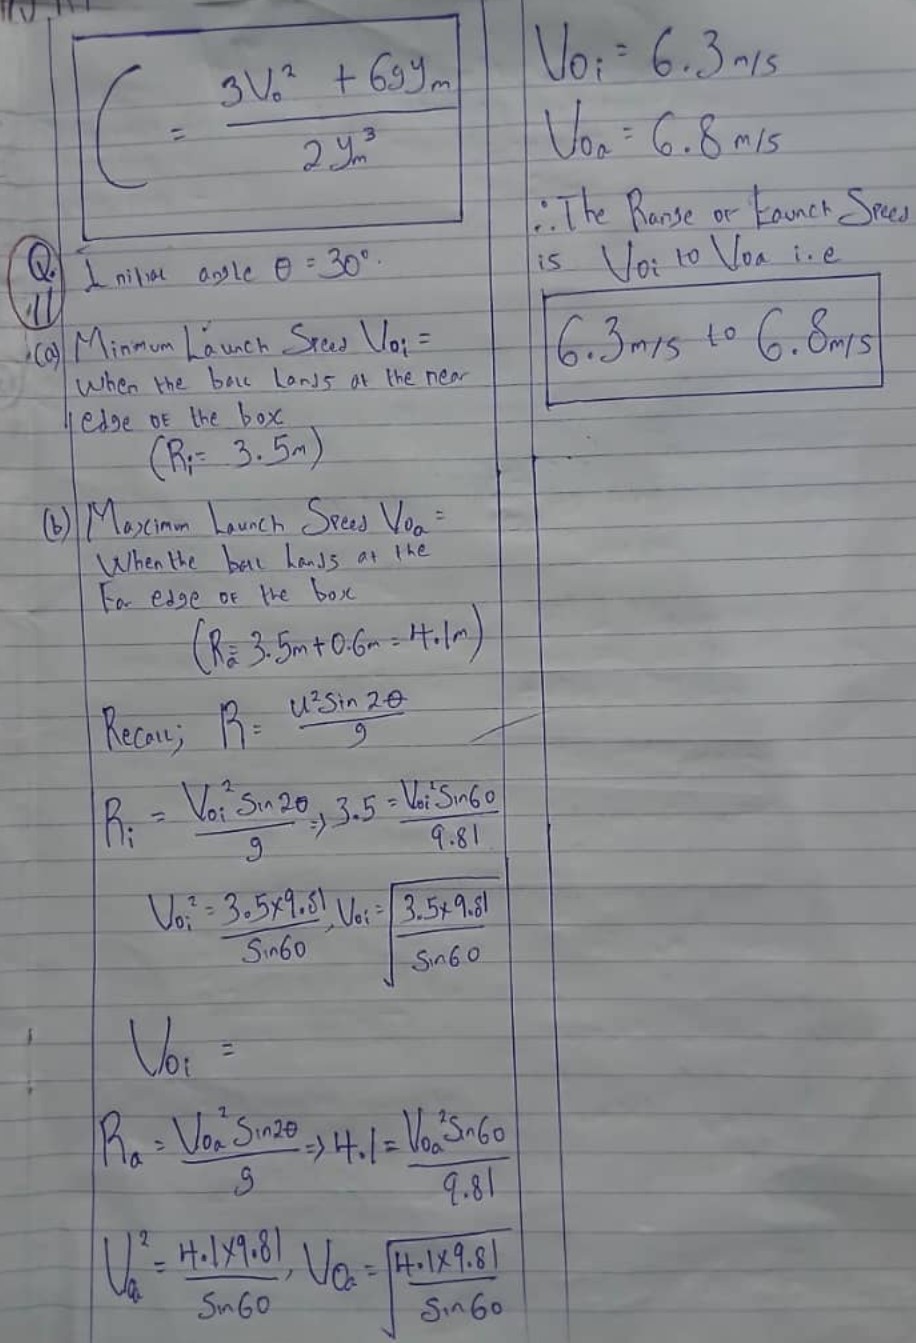 C = (3V₀² + 6gyₘ) / (2yₘ³)
Q.
11
Initial angle θ = 30°.
(a) Minimum Launch Speed V₀ᵢ =
When the ball lands at the near
edge of the box
(Rᵢ = 3.5m)
(b) Maximum Launch Speed V₀ₐ =
When the ball lands at the
Far edge of the box
(Rₐ = 3.5m + 0.6m = 4.1m)
Recall; R = u² Sin 2θ / g
Rᵢ = V₀ᵢ² Sin 2θ / g ⇒ 3.5 = V₀ᵢ² Sin 60 / 9.81
V₀ᵢ² = 3.5 × 9.81 / Sin 60, V₀ᵢ = √(3.5 × 9.81 / Sin 60)
V₀ᵢ =
Rₐ = V₀ₐ² Sin 2θ / g ⇒ 4.1 = V₀ₐ² Sin 60 / 9.81
Vₐ² = 4.1 × 9.81 / Sin 60, V₀ₐ = √(4.1 × 9.81 / Sin 60)
V₀ᵢ = 6.3 m/s
V₀ₐ = 6.8 m/s
∴ The Range of Launch Speed
is V₀ᵢ to V₀ₐ i.e
6.3 m/s to 6.8 m/s